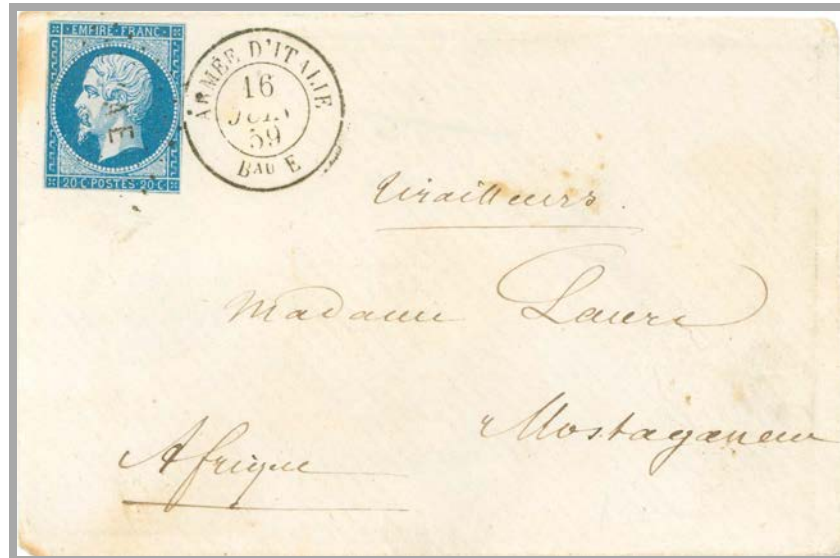 EMPIRE FRANC
20 C · POSTES · 20 C
ARMÉE D'ITALIE
16
JUIN
59
Bau E
Tirailleurs.
Madame Laure
Mostaganem
Afrique